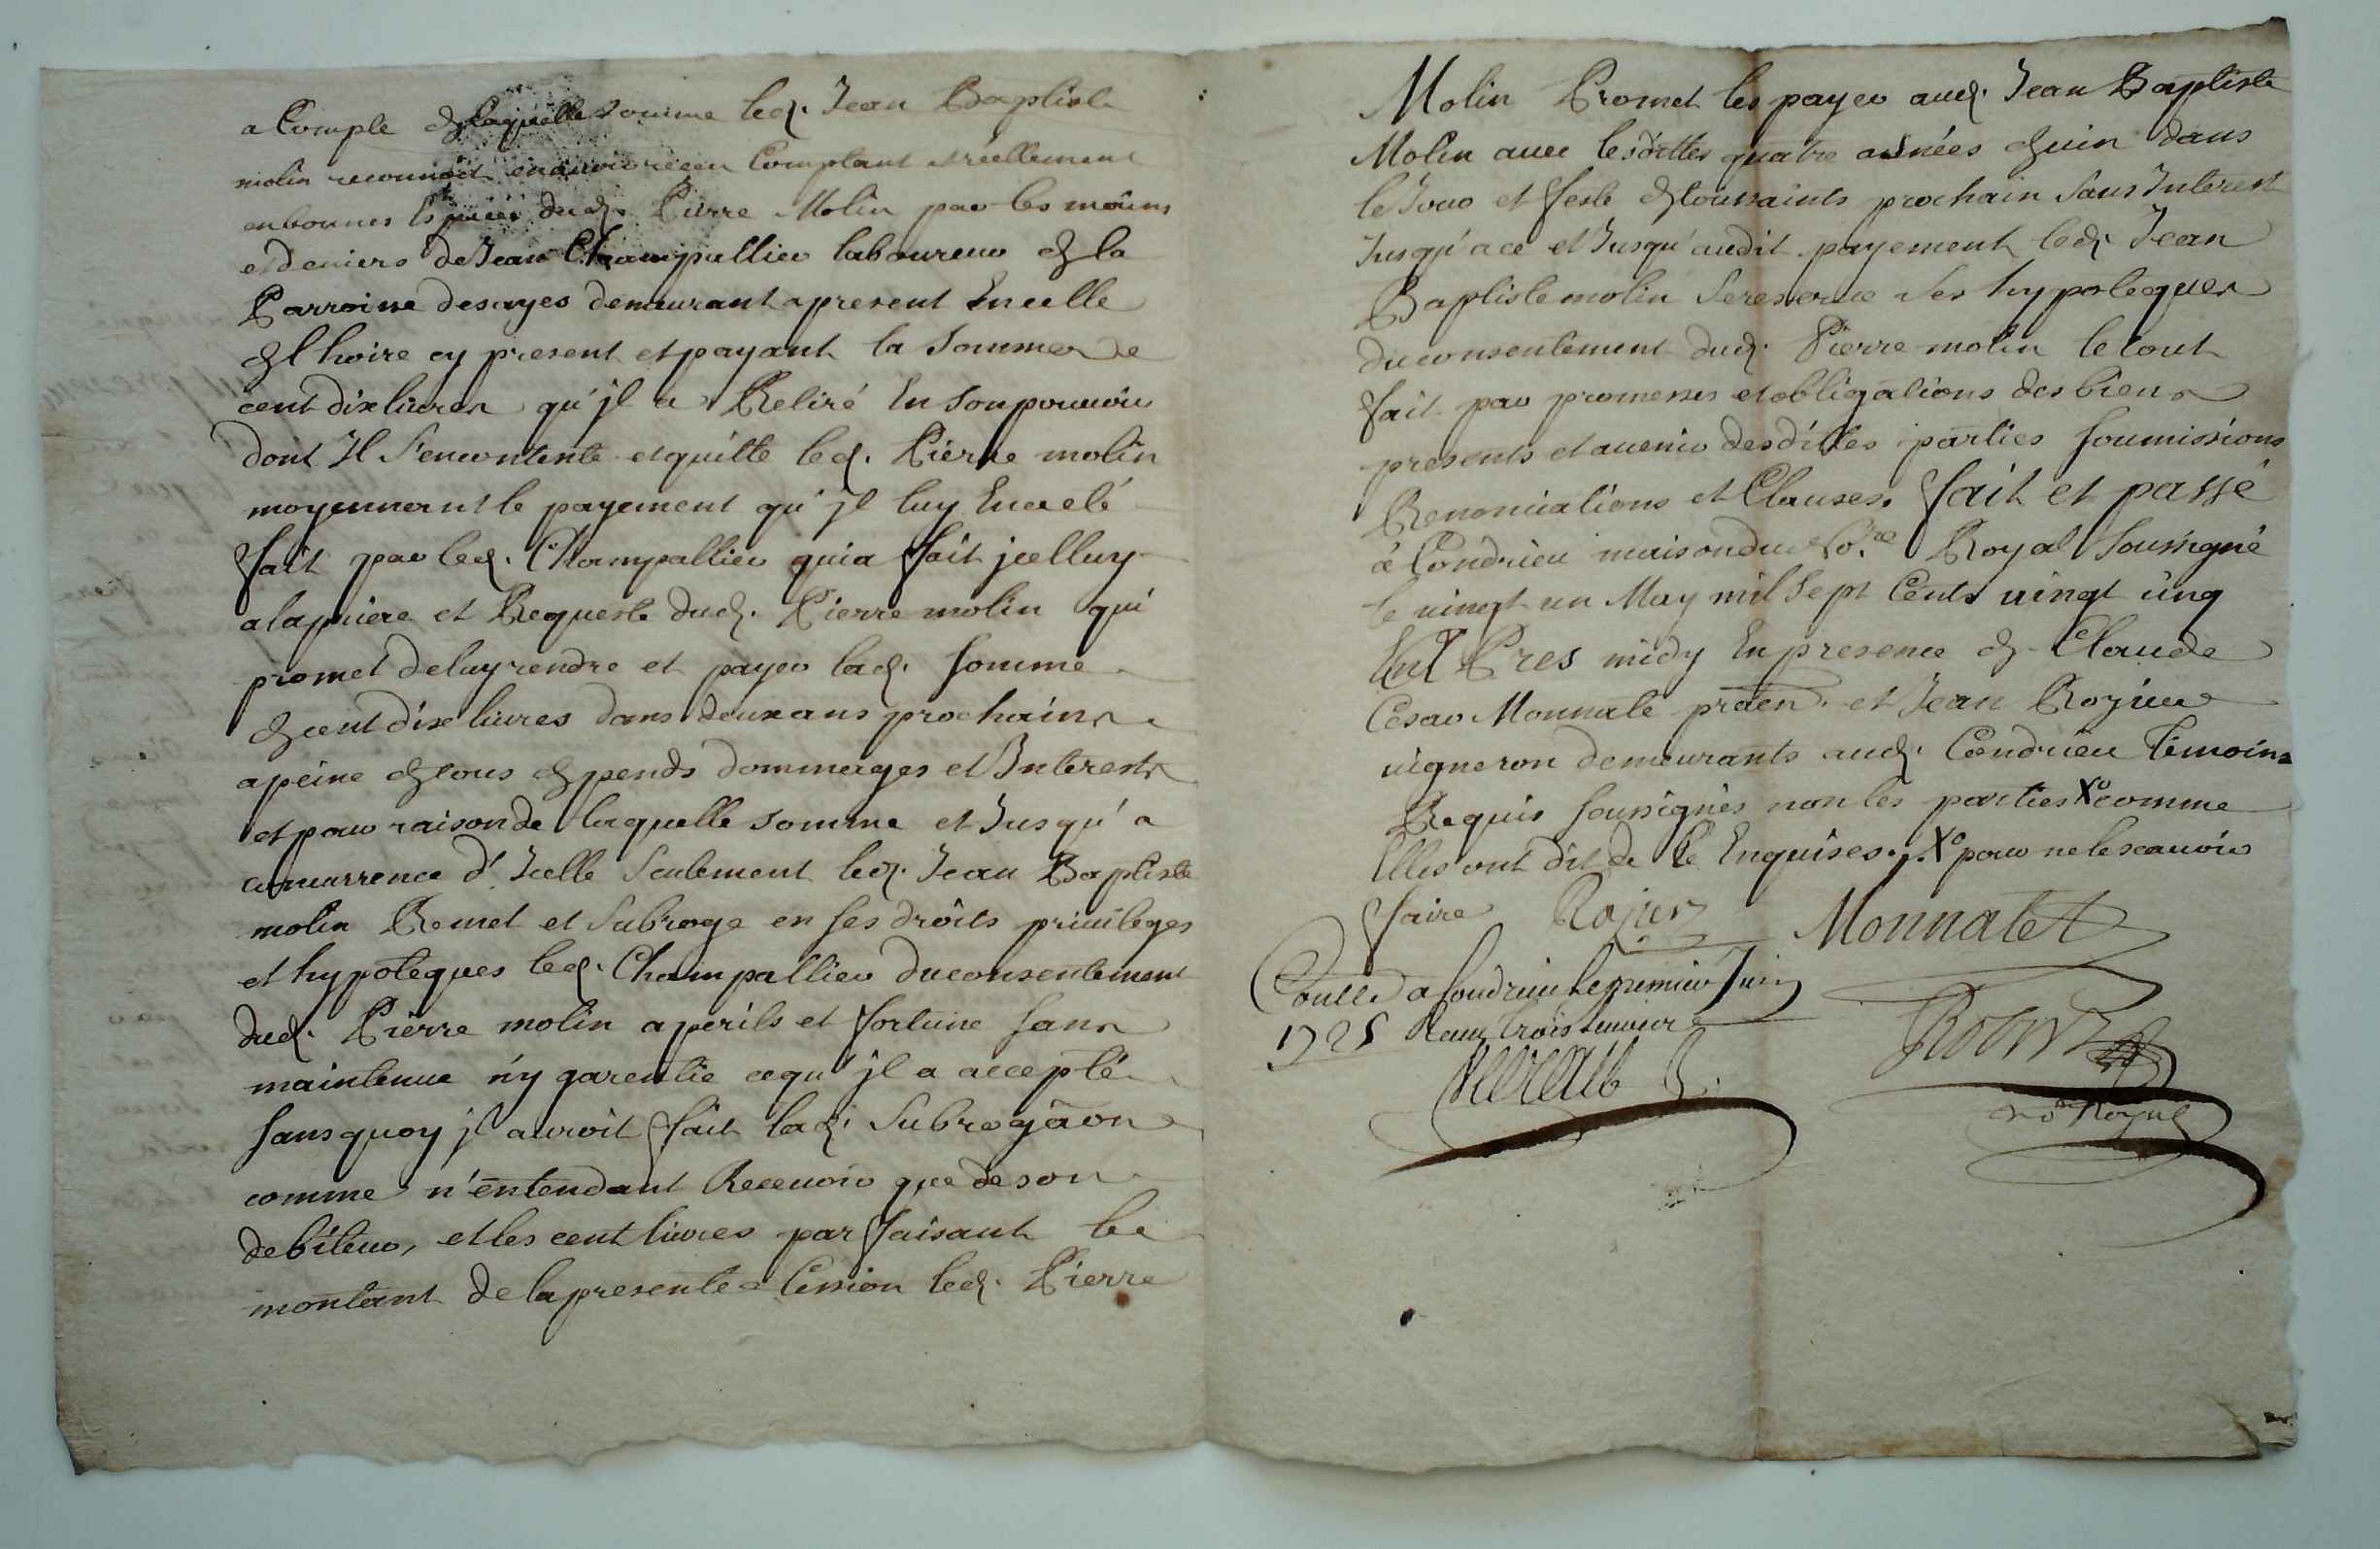 a Compte de laquelle somme led. Jean Baptiste
molin reconnoit en avoir receu Comptant et réellement
en bonnes Espèces dud. Pierre Molin par les mains
et deniers de Jean Champallier laboureur de la
Parroisse desayes demeurant a present En celle
de Lhoire cy present et payant la somme de
cent dix livres qu'jl a Retiré En son pouvoir
dont Il s'en contente et quitte led. Pierre molin
moyennant le payement qu'jl luy En a eté
fait par led. Champallier qui a fait jcelluy
a la priere et Requeste dud. Pierre molin qui
promet de luy rendre et payer lad. somme
de cent dix livres dans deux ans prochains
a peine de tous depends dommages et Interests
et pour raison de laquelle somme et Jusqu'a
concurrence d'Icelle seulement led. Jean Baptiste
molin Remet et subroge en ses droits privileges
et hypoteques led. Champallier du consentement
dud. Pierre molin a perils et fortune sans
maintenue n'y garentie ce qu'jl a accepté
sans quoy jl auroit fait lad. subrogãon
comme n'entendant Recevoir que de son
debiteur, et les cent livres parfaisant le
montant de la presente Cession led. Pierre
Molin Promet les payer aud. Jean Baptiste
Molin avec lesdittes quatre asnées de vin dans
le Jour et feste de toussaints prochain sans Interest
Jusqu'a ce et Jusqu'audit payement led. Jean
Baptiste molin se reserve ses hypoteques
du consentement dud. Pierre molin le tout
fait par promesses et obligations des biens
presents et avenir desdittes parties soumissions
Renonciations et Clauses. fait et passé
à Condrieu maison du no.re Royal soussigné
le vingt un May mil sept Cents vingt cinq
Pres midy En presence de Claude
Cesar Monnate praen. et Jean Rojier
vigneron demeurants aud. Condrieu temoins
Requis soussignés non les parties Xo comme
Elles ont dit de ce Enquises. Xo pour ne le scavoir
faire Rojier Monnate
Conlle a Condrieu le premier Juin
1725 Reçu trois
no.re Royal